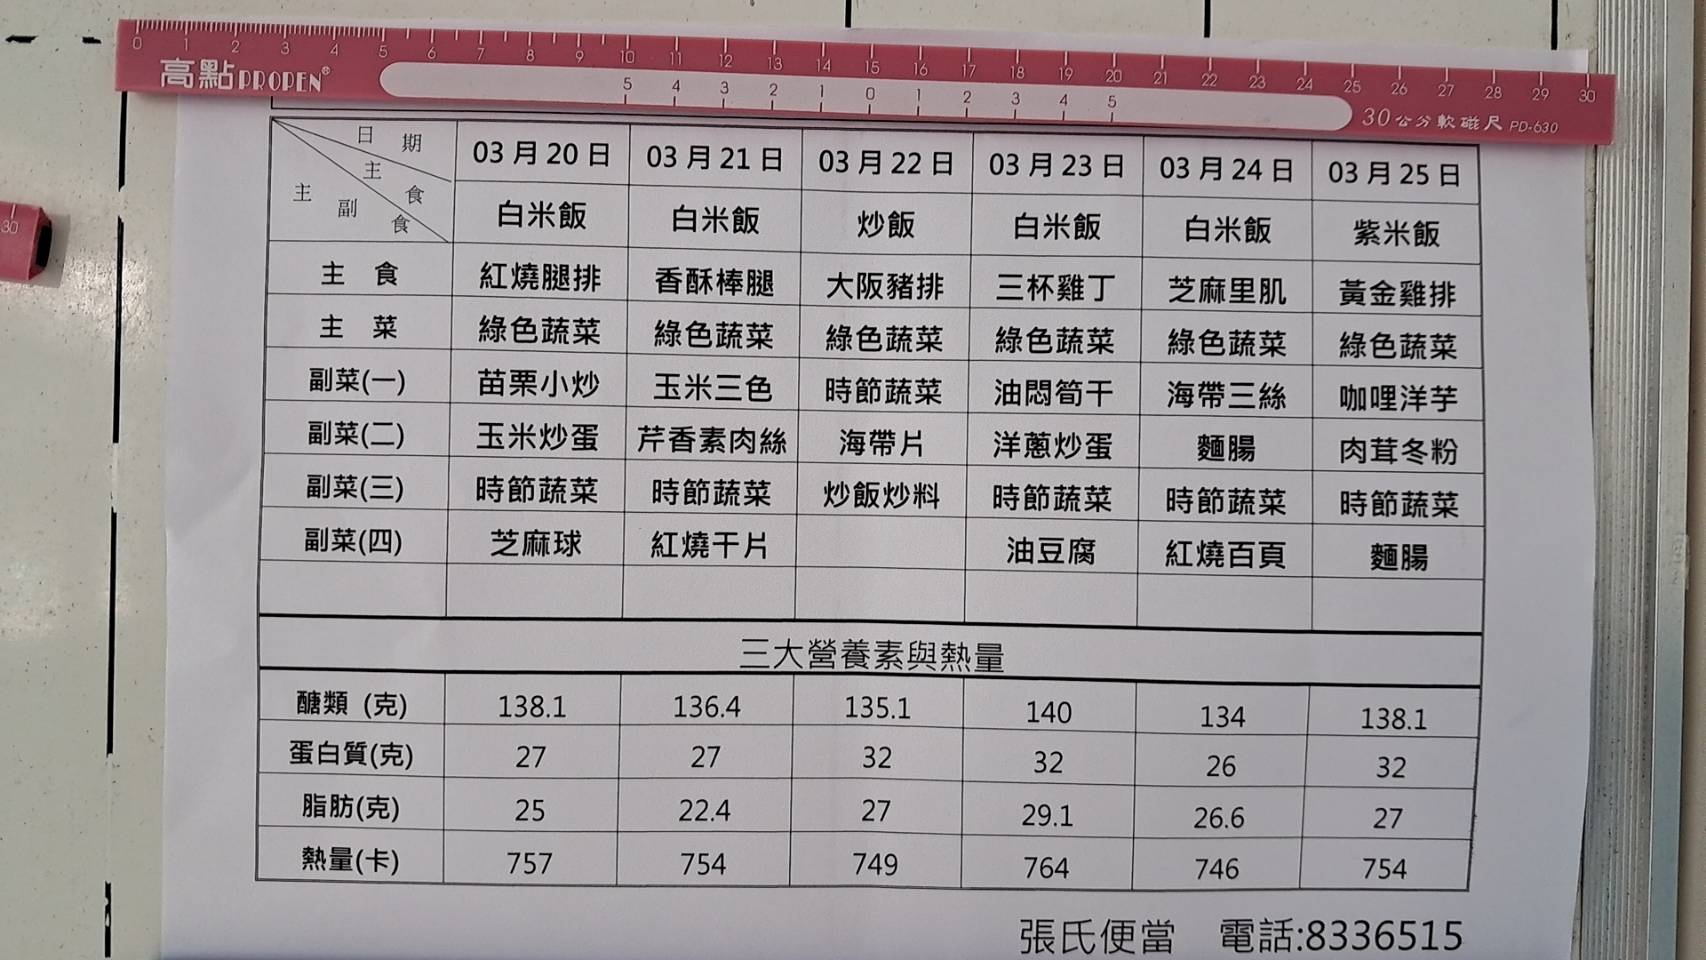 0 1 2 3 4 5 6 7 8 9 10 11 12 13 14 15 16 17 18 19 20 21 22 23 24 25 26 27 28 29 30
高點PROPEN®
5 4 3 2 1 0 1 2 3 4 5
30公分軟磁尺 PD-630
30
日期 主食 主副食 03月20日 03月21日 03月22日 03月23日 03月24日 03月25日
白米飯 白米飯 炒飯 白米飯 白米飯 紫米飯
主 食 紅燒腿排 香酥棒腿 大阪豬排 三杯雞丁 芝麻里肌 黃金雞排
主 菜 綠色蔬菜 綠色蔬菜 綠色蔬菜 綠色蔬菜 綠色蔬菜 綠色蔬菜
副菜(一) 苗栗小炒 玉米三色 時節蔬菜 油悶筍干 海帶三絲 咖哩洋芋
副菜(二) 玉米炒蛋 芹香素肉絲 海帶片 洋蔥炒蛋 麵腸 肉茸冬粉
副菜(三) 時節蔬菜 時節蔬菜 炒飯炒料 時節蔬菜 時節蔬菜 時節蔬菜
副菜(四) 芝麻球 紅燒干片 油豆腐 紅燒百頁 麵腸
三大營養素與熱量
醣類 (克) 138.1 136.4 135.1 140 134 138.1
蛋白質(克) 27 27 32 32 26 32
脂肪(克) 25 22.4 27 29.1 26.6 27
熱量(卡) 757 754 749 764 746 754
張氏便當 電話:8336515